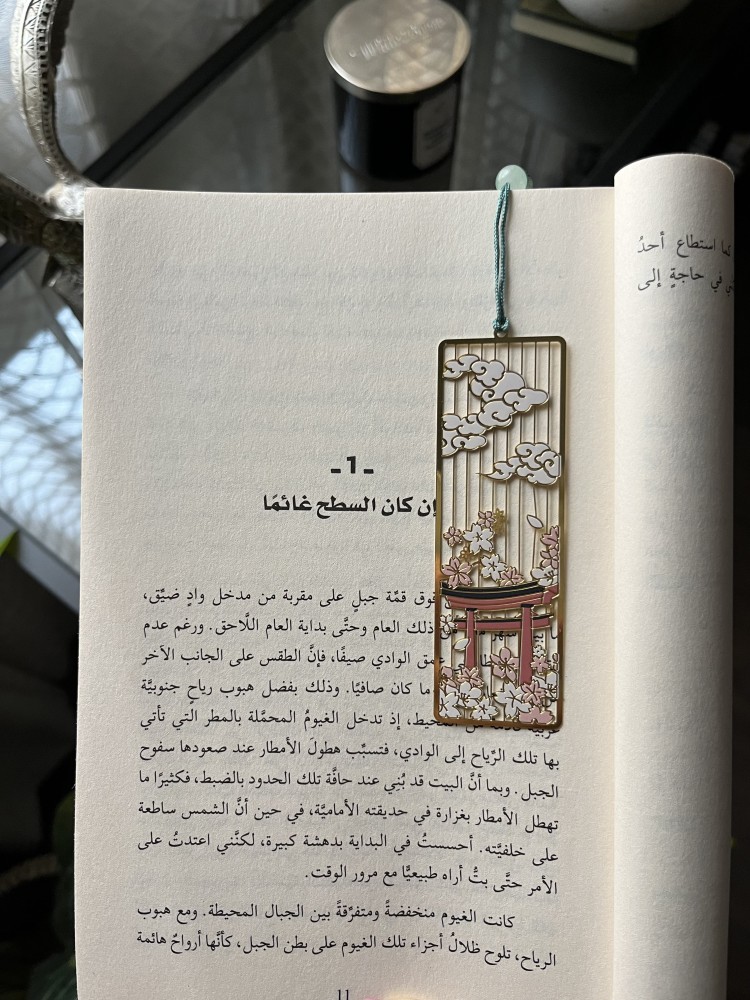 كما استطاع أحدُ
في حاجةٍ إلى
ـ 1 ـ
إن كان السطح غائمًا
فوق قمَّة جبلٍ على مقربة من مدخل وادٍ ضيِّق،
ذلك العام وحتَّى بداية العام اللَّاحق. ورغم عدم
عمق الوادي صيفًا، فإنَّ الطقس على الجانب الآخر
ما كان صافيًا. وذلك بفضل هبوب رياحٍ جنوبيَّة
إذ تدخل الغيومُ المحمَّلة بالمطر التي تأتي
بها تلك الرِّياح إلى الوادي، فتسبِّب هطولَ الأمطار عند صعودها سفوح
الجبل. وبما أنَّ البيت قد بُنِي عند حافَّة تلك الحدود بالضبط، فكثيرًا ما
تهطل الأمطار بغزارة في حديقته الأماميَّة، في حين أنَّ الشمس ساطعة
على خلفيَّته. أحسستُ في البداية بدهشة كبيرة، لكنَّني اعتدتُ على
الأمر حتَّى بتُّ أراه طبيعيًّا مع مرور الوقت.
كانت الغيوم منخفضةً ومتفرِّقةً بين الجبال المحيطة. ومع هبوب
الرياح، تلوح ظلالُ أجزاء تلك الغيوم على بطن الجبل، كأنَّها أرواحٌ هائمة
11